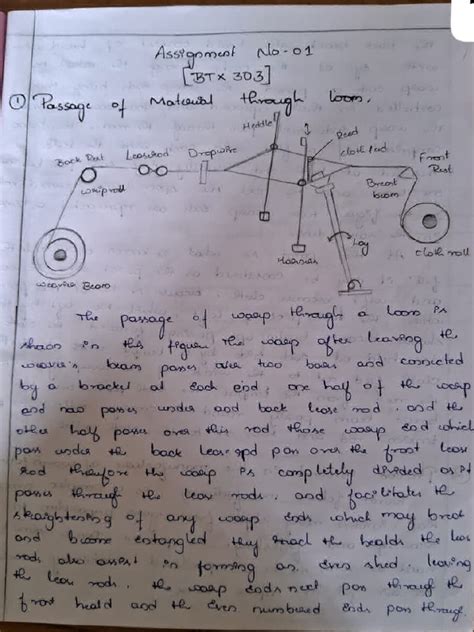 Assignment No-01
[BTX 303]
① Passage of Material through loom.
Heddle
Reed
Back Rest
Leaserod
Dropwire
cloth fed
Front Rest
whip roll
Breast beam
Lay
Harness
cloth roll
weaver Beam
The passage of warp through a loom is
shaon in this figure. The warp after leaving the
weaver's beam passes over two bars and connected
by a bracket at each end. one half of the warp
end now passes under and back lease rod. and the
other half passes over this rod, those warp end which
pass under the back lease pass over the front lease
rod therefore the warp is completely divided as it
passes through the lease rods. and facilitates the
straightening of any warp ends which may break
and become entangled they reach the healds the lease
rods also assist in forming an even shed. leaving
the lease rods. the warp ends next pass through the
front heald and the even numbered ends pass through